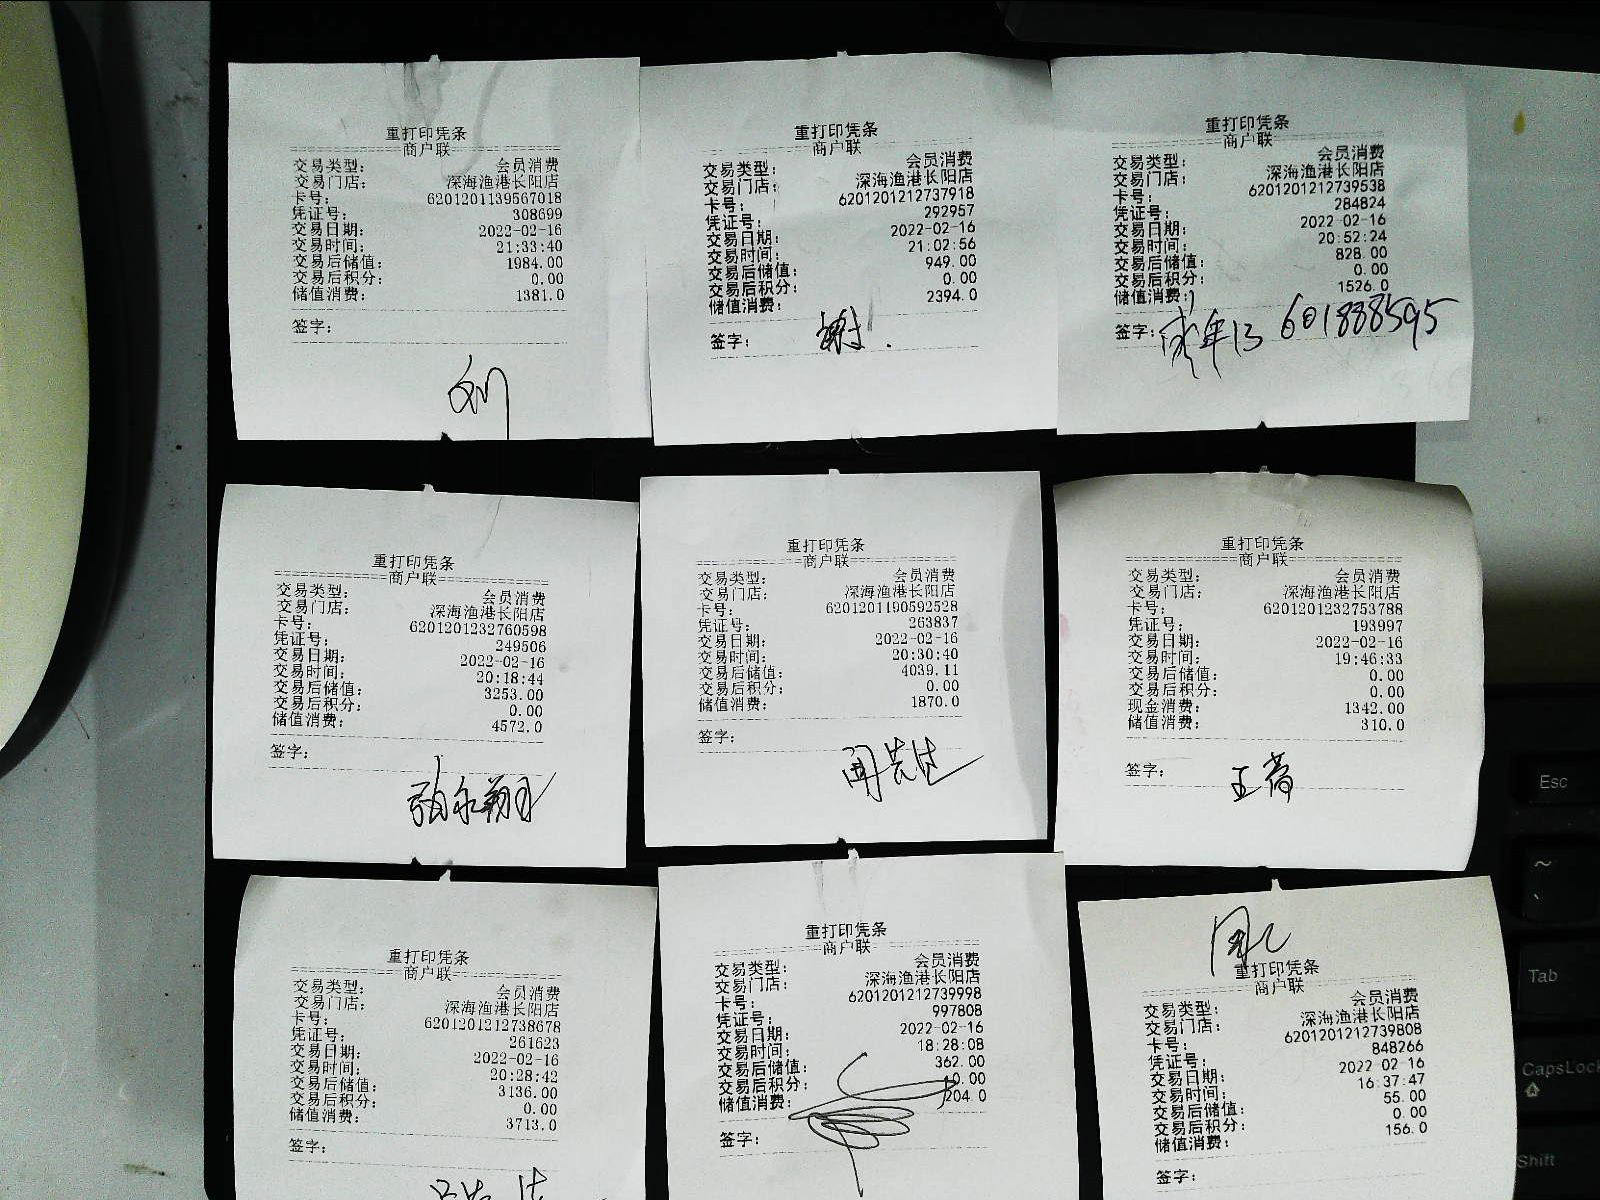 重打印凭条
商户联
交易类型： 会员消费
交易门店： 深海渔港长阳店
卡号： 6201201139567018
凭证号： 308699
交易日期： 2022-02-16
交易时间： 21:33:40
交易后储值： 1984.00
交易后积分： 0.00
储值消费： 1381.0
签字：
刘
重打印凭条
商户联
交易类型： 会员消费
交易门店： 深海渔港长阳店
卡号： 6201201212737918
凭证号： 292957
交易日期： 2022-02-16
交易时间： 21:02:56
交易后储值： 949.00
交易后积分： 0.00
储值消费： 2394.0
签字： 谢
重打印凭条
商户联
交易类型： 会员消费
交易门店： 深海渔港长阳店
卡号： 6201201212739538
凭证号： 284824
交易日期： 2022-02-16
交易时间： 20:52:24
交易后储值： 828.00
交易后积分： 0.00
储值消费： 1526.0
签字： 13601888595
重打印凭条
商户联
交易类型： 会员消费
交易门店： 深海渔港长阳店
卡号： 6201201232760598
凭证号： 249506
交易日期： 2022-02-16
交易时间： 20:18:44
交易后储值： 3253.00
交易后积分： 0.00
储值消费： 4572.0
签字：
张永翔
重打印凭条
商户联
交易类型： 会员消费
交易门店： 深海渔港长阳店
卡号： 6201201190592528
凭证号： 263837
交易日期： 2022-02-16
交易时间： 20:30:40
交易后储值： 4039.11
交易后积分： 0.00
储值消费： 1870.0
签字：
周先生
重打印凭条
商户联
交易类型： 会员消费
交易门店： 深海渔港长阳店
卡号： 6201201232753788
凭证号： 193997
交易日期： 2022-02-16
交易时间： 19:46:33
交易后储值： 0.00
交易后积分： 0.00
现金消费： 1342.00
储值消费： 310.0
签字：
重打印凭条
商户联
交易类型： 会员消费
交易门店： 深海渔港长阳店
卡号： 6201201212738678
凭证号： 261623
交易日期： 2022-02-16
交易时间： 20:28:42
交易后储值： 3136.00
交易后积分： 0.00
储值消费： 3713.0
签字：
重打印凭条
商户联
交易类型： 会员消费
交易门店： 深海渔港长阳店
卡号： 6201201212739998
凭证号： 997808
交易日期： 2022-02-16
交易时间： 18:28:08
交易后储值： 362.00
交易后积分： 0.00
储值消费： 204.0
签字：
重打印凭条
商户联
交易类型： 会员消费
交易门店： 深海渔港长阳店
卡号： 6201201212739808
凭证号： 848266
交易日期： 2022-02-16
交易时间： 16:37:47
交易后储值： 55.00
交易后积分： 0.00
储值消费： 156.0
签字：
Esc
~
Tab
CapsLock
Shift